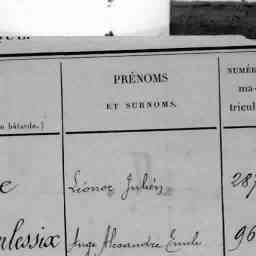 PRÉNOMS
NUMÉR
ET SURNOMS.
ma-
tricul
n bâtarde.)
e Léonor Julien 287
rlessix Ange Alexandre Emile 96